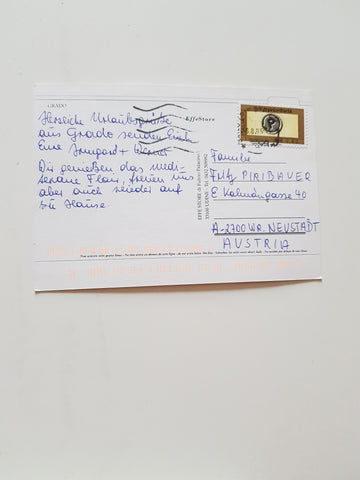 GRADO
Herzliche Urlaubsgrüße
aus Grado senden Euch
Eure Irmgard + Werner
Wir genießen das medi-
terrane Flair, freuen uns
aber auch wieder auf
zu Hause.
EffeStore
EFFE STORE di Fabris Federico
Familie
PIRIBAUER
E Kalmángasse 40
A-2700 WR. NEUSTADT
AUSTRIA